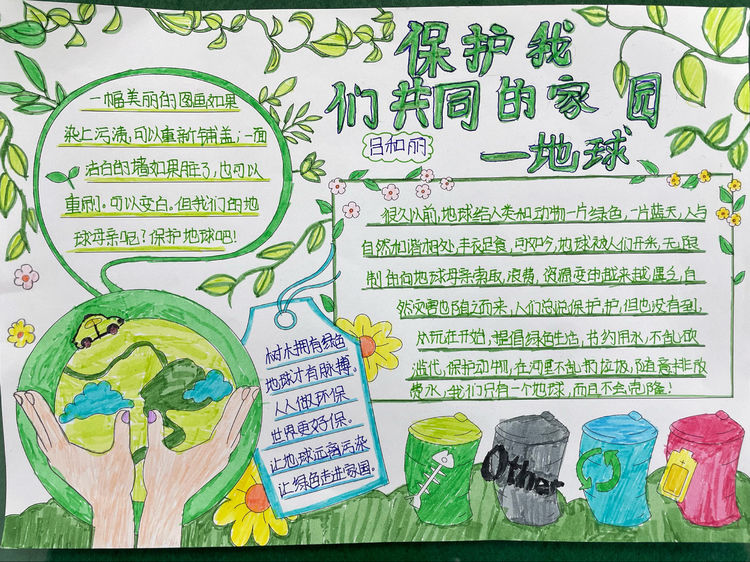 保护我
们共同的家园
—地球
吕和丽
一幅美丽的图画如果
染上污渍,可以重新铺盖;一面
洁白的墙如果脏了,也可以
重刷。可以变白。但我们的地
球母亲呢?保护地球吧!
很久以前,地球给人类和动物一片绿色,一片蓝天,人与
自然和谐相处,丰衣足食,可如今,地球被人们开采,无限
制的向地球母亲索取,浪费,资源变申越来越匮乏,自
然灾害也随之而来,人们总说保护,护,但也没有到,
从玩在开始,提倡绿色生活,节约用水,不乱砍
滥伐,保护动物,在河里不乱扔垃圾,随意排放
费水,我们只有一个地球,而且不会克隆!
树木拥有绿色
地球才有脉搏。
人人做环保
世界更好保。
让地球远离污染
让绿色走进家园。
Other